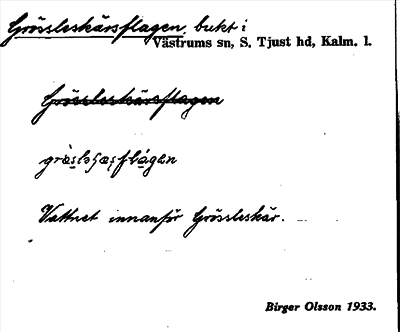 Grössleskärsflagen, bukt i
Västrums sn, S. Tjust hd, Kalm. l.
Grössleskärsflagen
Vattnet innanför Grössleskär.
Birger Olsson 1933.